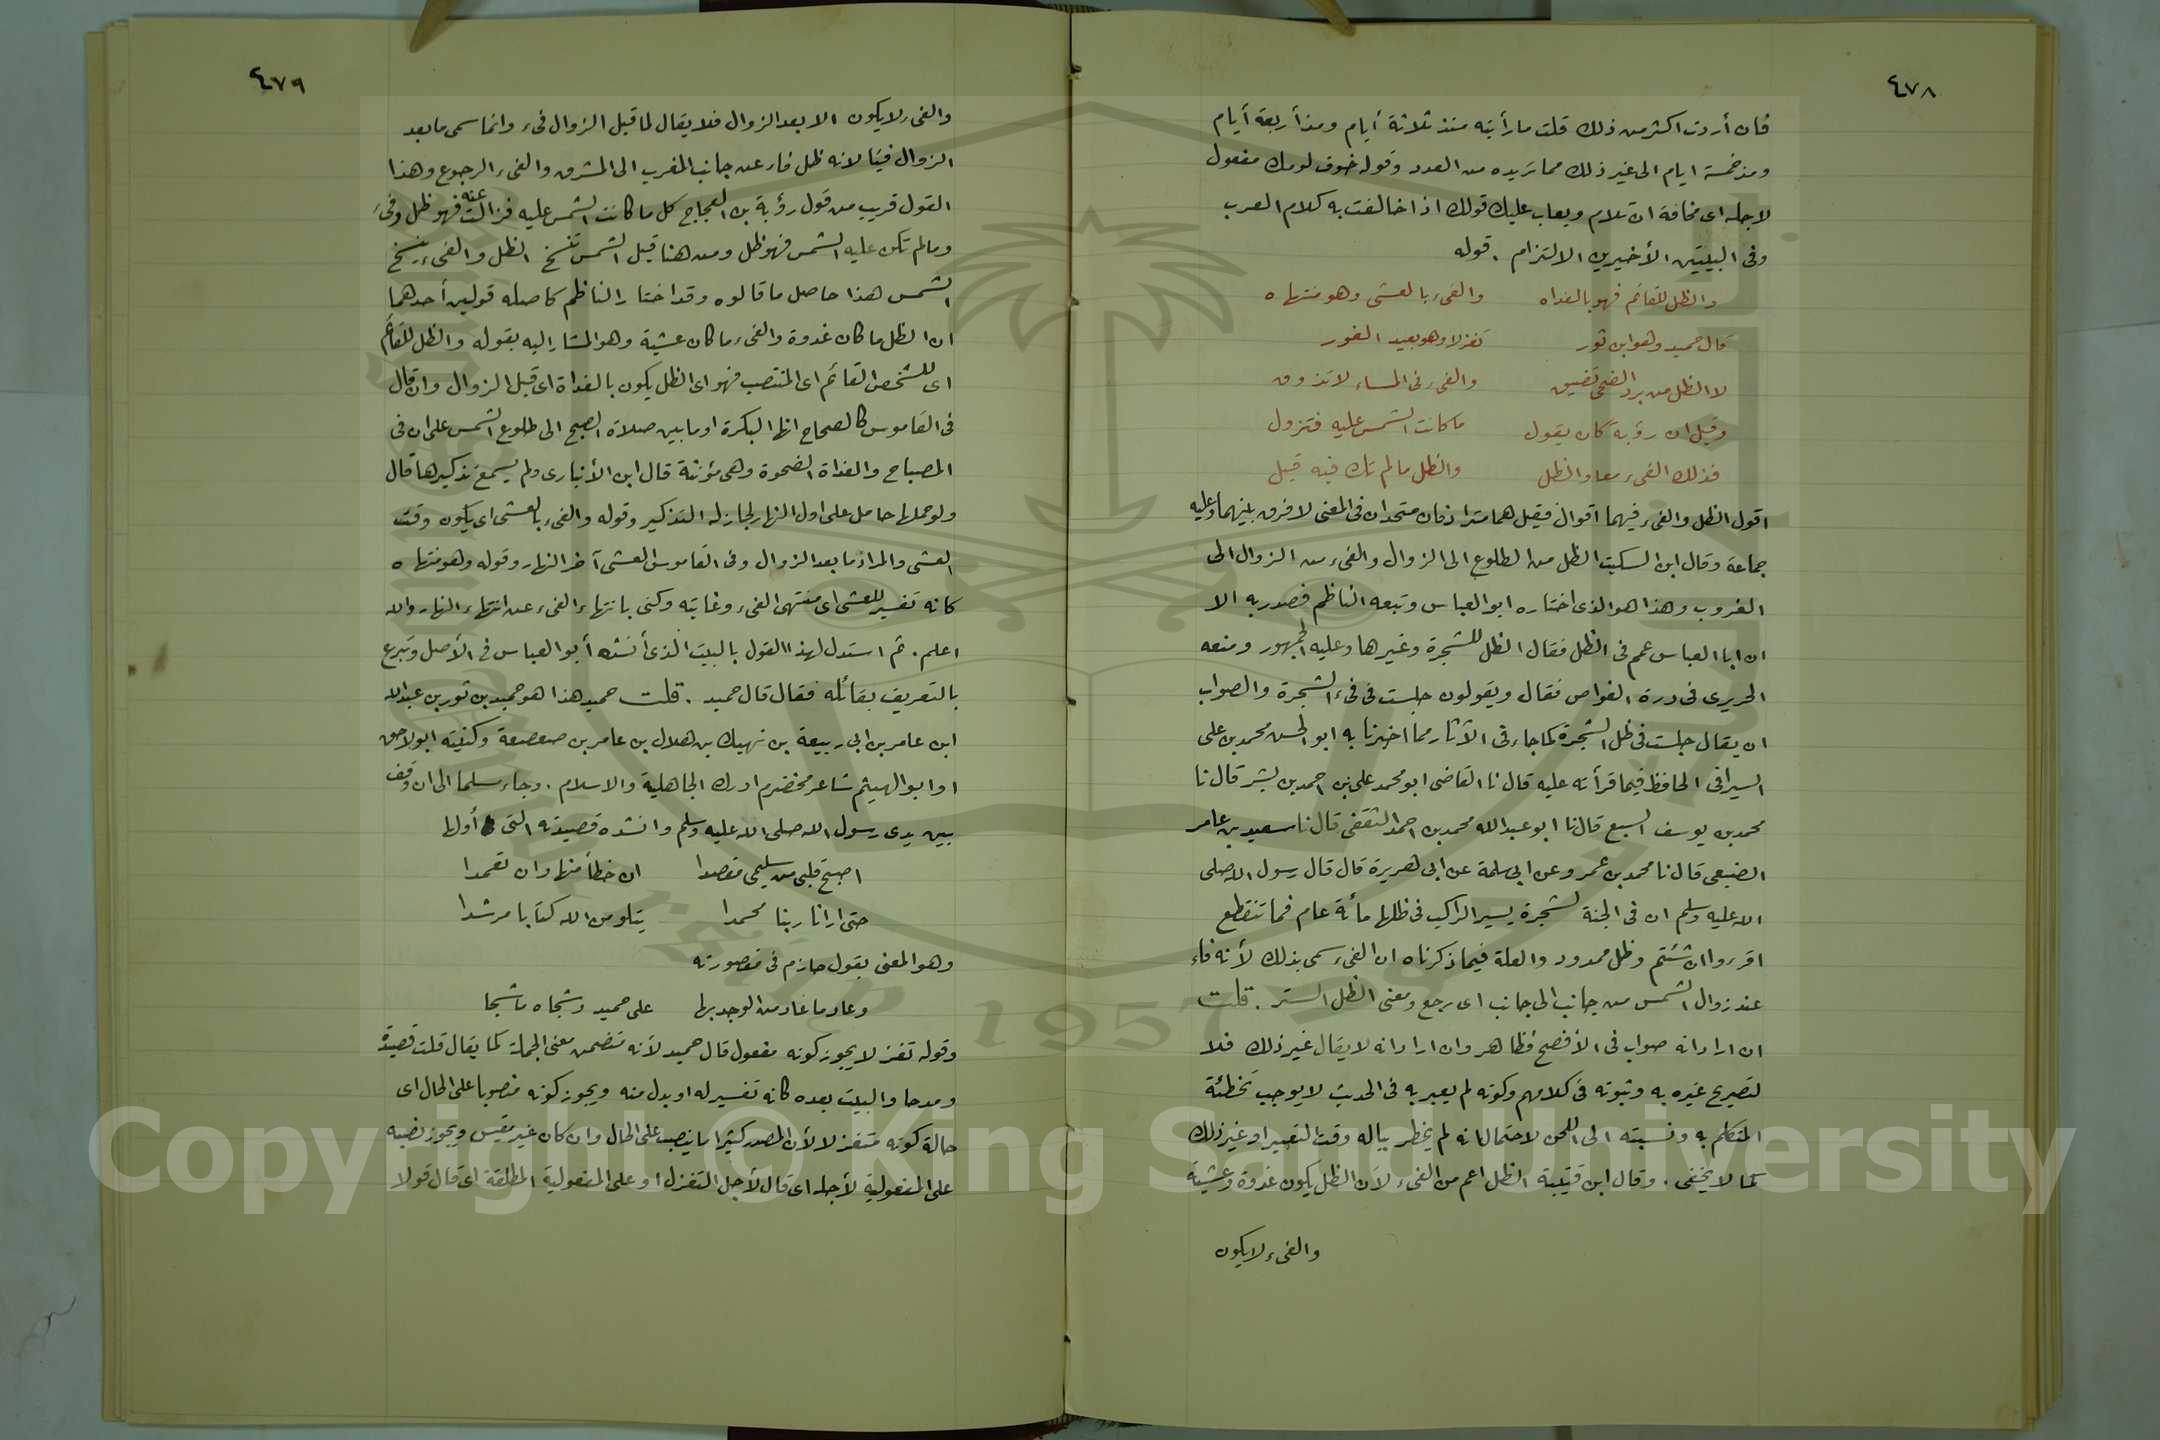 ٤٧٨
فان أردت اكثر من ذلك قلت ما رأيته منذ ثلاثة أيام ومذ أربعة أيام
ومذ خمسة ايام الى غير ذلك مما تريده من العدد وقوله خوف لومك مفعول
لاجله اى مخافة ان تلام ويعاب عليك قولك اذا خالفت به كلام العرب
وفى البيتين الأخيرين الالتزام . قوله
والظل للقائم فهو بالغداه والفىء بالعشى وهو منتهاه
قال حميد وهو ابن ثور تغزلا وهو بعيد الغور
لا الظل من برد الضحى تضيق والفىء فى المساء لا تذوق
وقيل ان رؤبة كان يقول ما كانت الشمس عليه فتزول
فذلك الفىء معا والظل والظل ما لم تك فيه قيل
اقول الظل والفىء فيهما اقوال فقيل هما مترادفان متحدان فى المعنى لا فرق بينهما وعليه
جماعة وقال ابن السكيت الظل من الطلوع الى الزوال والفىء من الزوال الى
الغروب وهذا هو الذى اختاره ابو العباس وتبعه الناظم فصدر به الا
ان ابا العباس عمم فى الظل فقال الظل للشجرة وغيرها وعليه الجمهور ومنعه
الحريرى فى درة الغواص فقال ويقولون جلست فى فىء الشجرة والصواب
ان يقال جلست فى ظل الشجرة كما جاء فى الآثار مما اخبرنا به ابو الحسن محمد بن على
السيرافى الحافظ فيما قرأته عليه قال نا القاضى ابو محمد على بن احمد بن بشر قال نا
محمد بن يوسف السبع قال نا ابو عبد الله محمد بن احمد الثقفى قال نا سعيد بن عامر
الضبعى قال نا محمد بن عمرو عن ابى سلمة عن ابى هريرة قال قال رسول الله صلى
الله عليه وسلم ان فى الجنة لشجرة يسير الراكب فى ظلها مأئة عام فما تنقطع
اقرءوا ان شئتم وظل ممدود والعلة فيما ذكرناه ان الفىء سمى بذلك لأنه فاء
عند زوال الشمس من جانب الى جانب اى رجع ومعنى الظل الستر . قلت
ان اراد انه صواب فى الأفصح فظاهر وان اراد انه لا يقال غير ذلك فلا
لتصريح غيره به وثبوته فى كلامهم وكونه لم يعبر به فى الحديث لا يوجب تخطئة
المتكلم به ونسبته الى اللحن لاحتمال انه لم يخطر بباله وقت التعبير او غير ذلك
كما لا يخفى . وقال ابن قتيبة الظل اعم من الفىء لأن الظل يكون غدوة وعشية
والفىء لا يكون
٤٧٩
والفىء لا يكون الا بعد الزوال فلا يقال لما قبل الزوال فىء وانما سمى ما بعد
الزوال فيئا لانه ظل فاء عن جانب المغرب الى المشرق والفىء الرجوع وهذا
القول قريب من قول رؤبة بن العجاج كل ما كانت الشمس عليه فزالت عنه فهو ظل وفىء
وما لم تكن عليه الشمس فهو ظل ومن هنا قيل الشمس تنسخ الظل والفىء ينسخ
الشمس هذا حاصل ما قالوه وقد اختار الناظم كاصله قولين أحدهما
ان الظل ما كان غدوة والفىء ما كان عشية وهو المشار اليه بقوله والظل للقائم
اى للشخص القائم اى المنتصب فهو اى الظل يكون بالغداة اى قبل الزوال وان قال
فى القاموس كالصحاح انها البكرة او ما بين صلاة الصبح الى طلوع الشمس على ان فى
المصباح والغداة الضحوة وهى مؤنثة قال ابن الأنبارى ولم يسمع تذكيرها قال
ولو حملها حامل على اول النهار لجاز له التذكير وقوله والفىء بالعشى اى يكون وقت
العشى والمراد ما بعد الزوال وفى القاموس العشى آخر النهار وقوله وهو منتهاه
كانه تفسير للعشى اى منتهى الفىء وغايته وكنى بانتهاء الفىء عن انتهاء النهار والله
اعلم . ثم استدل لهذا القول بالبيت الذى أنشده أبو العباس فى الأصل وتبرع
بالتعريف بقائله فقال قال حميد . قلت حميد هذا هو حميد بن ثور بن عبد الله
ابن عامر بن ابى ربيعة بن نهيك بن هلال بن عامر بن صعصعة وكنيته ابو لاحق
او ابو الهيثم شاعر مخضرم ادرك الجاهلية والاسلام . وجاء مسلما الى ان وقف
بين يدى رسول الله صلى الله عليه وسلم وانشده قصيدته التى أولها
اصبح قلبى من سليمى مقصدا ان خطأ منها وان تعمدا
حتى ارانا ربنا محمدا يتلو من الله كتابا مرشدا
وهو المعنى بقول حازم فى مقصورته
وعاد ما عاد من الوجد بها على حميد وشجاه ما شجا
وقوله تغزلا يجوز كونه مفعول قال حميد لأنه متضمن معنى الجملة كما يقال قلت قصيدة
ومدحا والبيت بعده كانه تفسير له او بدل منه ويجوز كونه منصوبا على الحال اى
حالة كونه متغزلا لأن المصدر كثيرا ما ينصب على الحال وان كان غير مقيس ويجوز نصبه
على المفعولية لأجله اى قال لأجل التغزل او على المفعولية المطلقة اى قال قولا
1957
Copyright © King Saud University